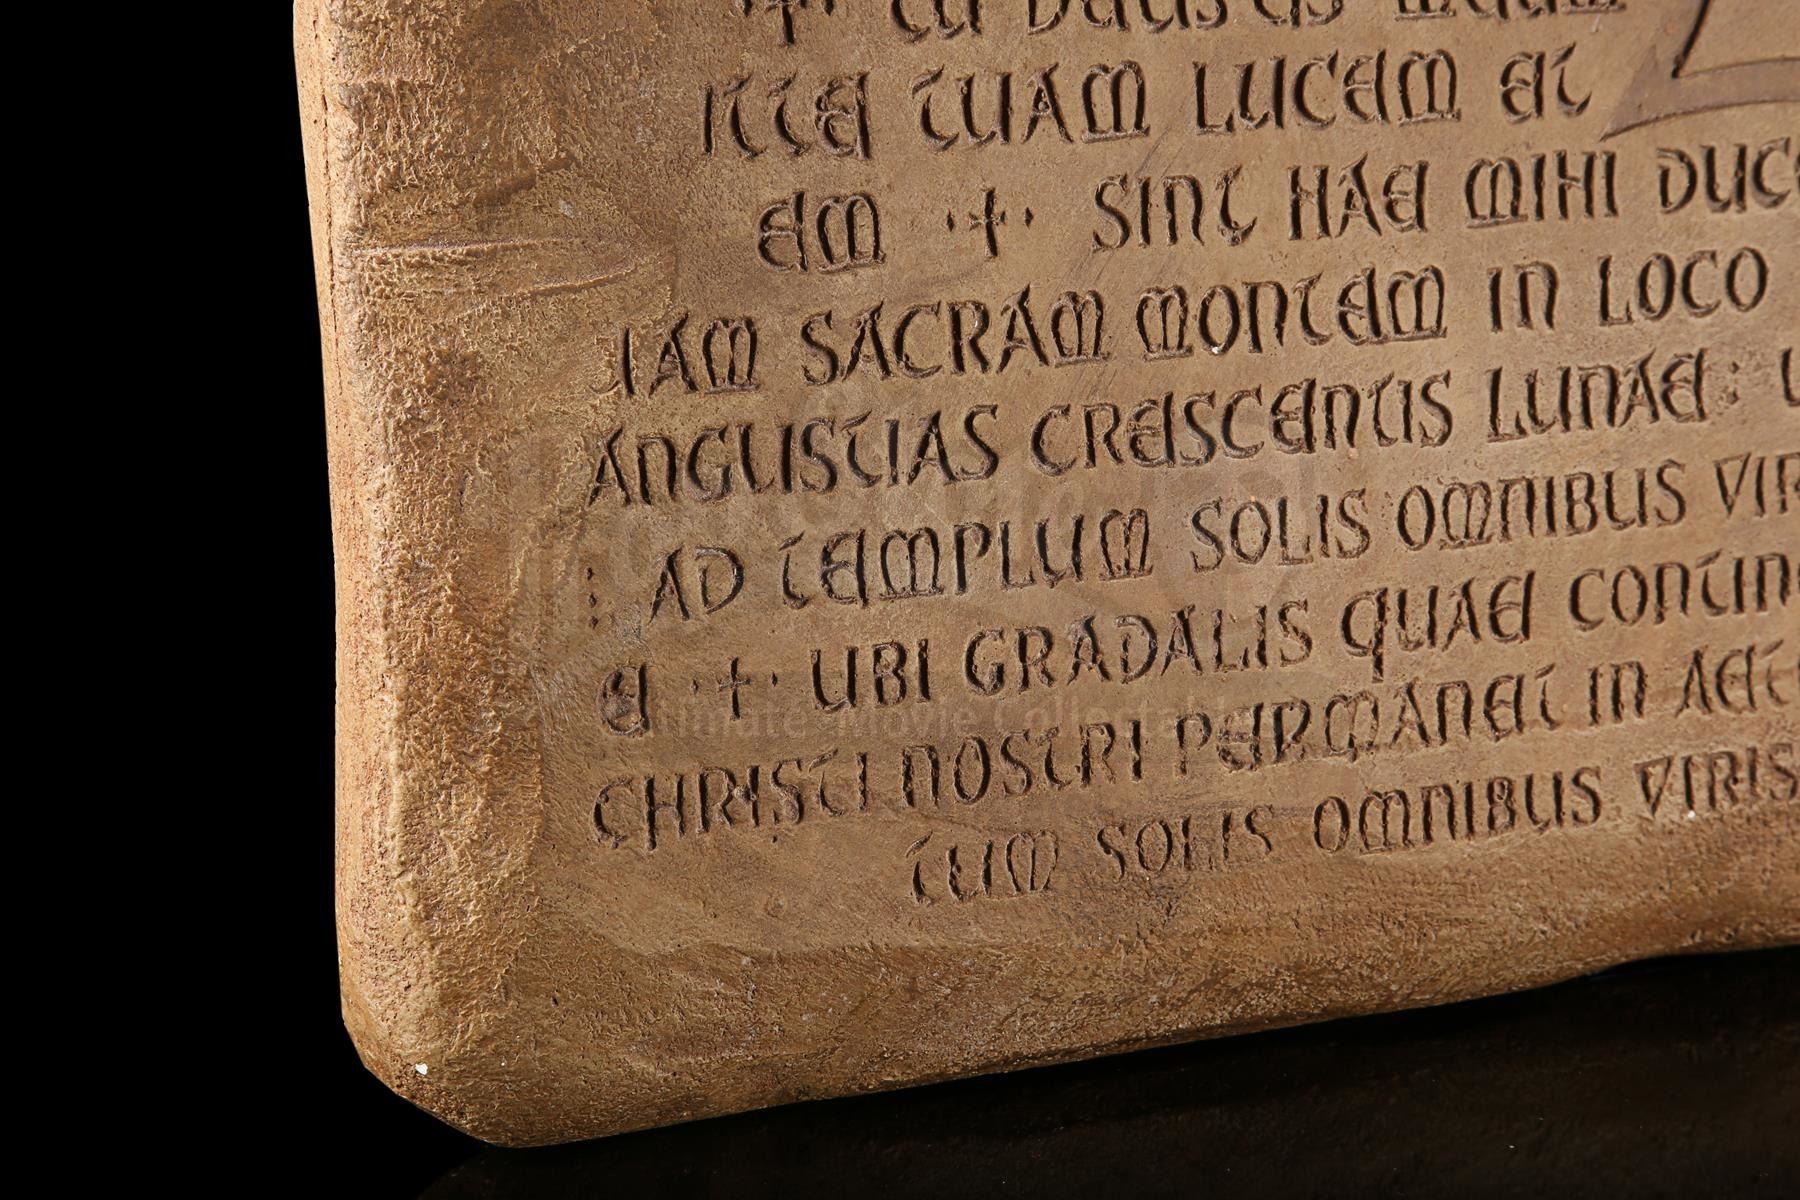 ·+· TU DEUS ES MEUM
ITTE TUAM LUCEM ET
EM ·+· SINT HAE MIHI DUCE
IAM SACRAM MONTEM IN LOCO
ANGUSTIAS CRESCENTIS LUNAE : U
: AD TEMPLUM SOLIS OMNIBUS VIR
E ·+· UBI GRADALIS QUAE CONTIN
CHRISTI NOSTRI PERMANET IN AETE
TUM SOLIS OMNIBUS VIRIS